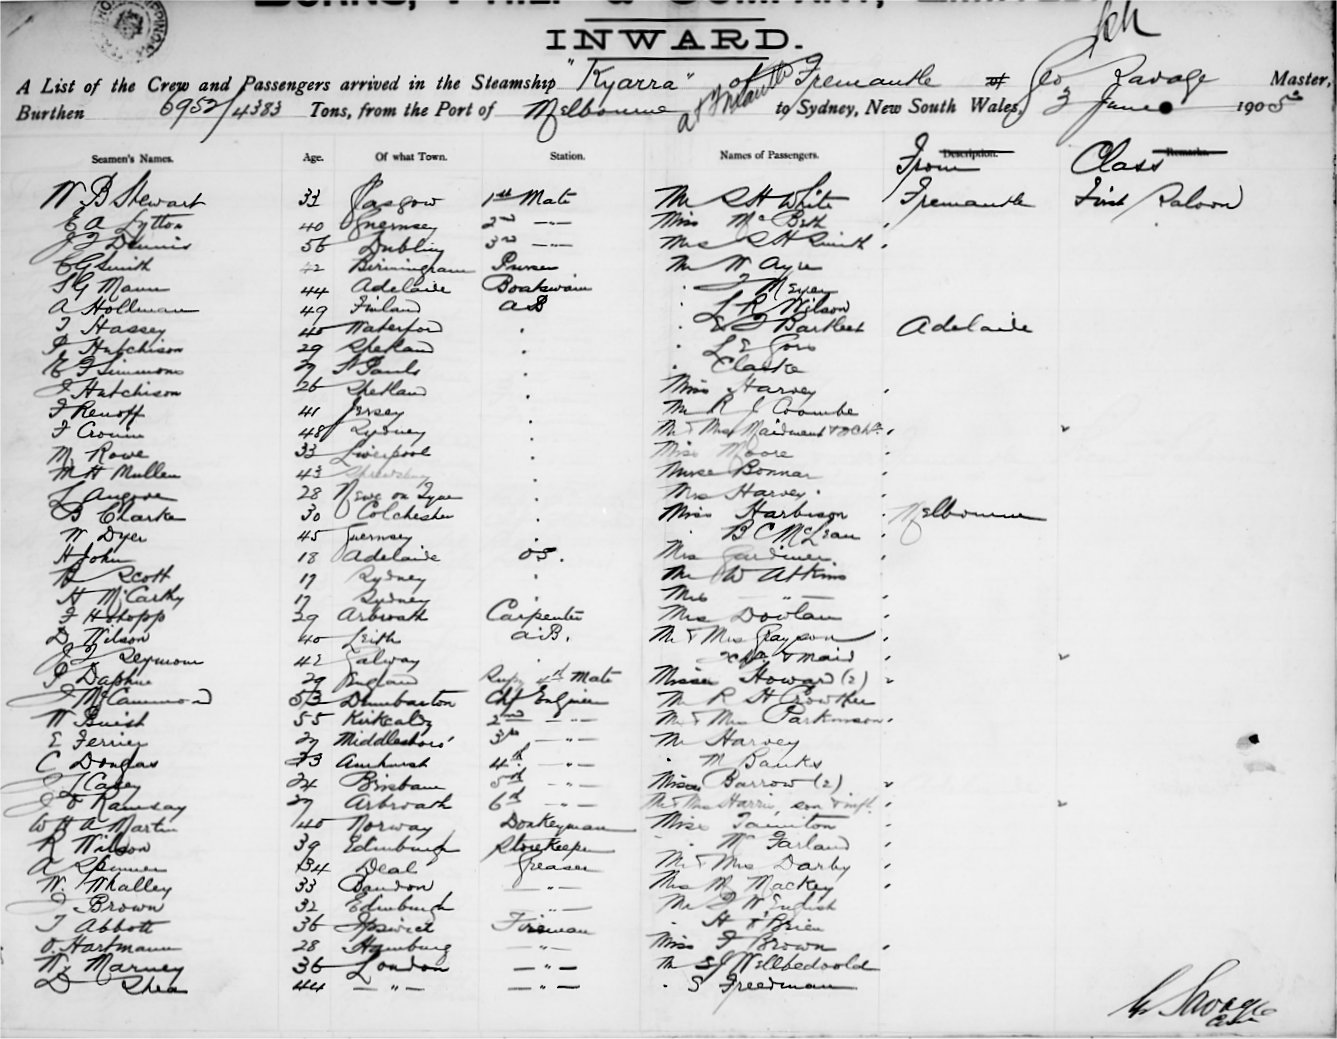 BURNS, PHILP & COMPANY, LIMITED.
INWARD.
A List of the Crew and Passengers arrived in the Steamship "Kyarra" of Fremantle Geo Savage Master,
Burthen 6952/4383 Tons, from the Port of Melbourne to Sydney, New South Wales, 3 June 1905
Seamen's Names. Age. Of what Town. Station. Names of Passengers. From Class
W B Stewart 33 Glasgow 1st Mate Mr S H White Fremantle First Saloon
E A Lytton 40 Guernsey 2nd -"- Miss McBeth
J F Dennis 56 Dublin 3rd -"- Mrs S H Smith
C G Smith 42 Birmingham Purser Mr W Ayre
S G Mann 44 Adelaide Boatswain " F Meyer
A Hollman 49 Finland AB " L R Wilson
T Hassey 40 Waterford " " E J Bartlett Adelaide
P Hutchison 29 Shetland " " L E Goss
E F Simmons 27 St Pauls " " Clarke
J Hutchison 26 Shetland " Miss Harvey
F Renoff 41 Jersey " Mr R J Coombe
F Cronin 48 Sydney " Mr & Mrs Maidment
M Rowe 33 Liverpool " Miss Moore
M H Mullen 43 " Nurse Bonnar
L Angove 28 Newc on Tyne " Mrs Harvey
B Clarke 30 Colchester " Miss Harbison Melbourne
W Dyer 45 Guernsey " " B C McLean
H John 18 Adelaide OS. Mrs Gardiner
B Scott 17 Sydney " Mr W Atkins
H McCarthy 17 Sydney " Mrs -"-
F H Shopp 29 Arbroath Carpenter Mrs Dowlan
D Wilson 40 Leith A.B. Mr & Mrs Grayson
J F Seymour 42 Galway " & maid
P Daphne 29 England Supy 4th Mate Misses Howard (2)
J McCammond 53 Dumbarton Chf Engineer Mr R H Crowther
W Buist 55 Kirkcaldy 2nd -"- Mr & Mrs Parkinson
E Ferrier 27 Middlesboro' 3rd -"- Mr Harvey
C Douglas 23 Amhurst 4th -"- " M Banks
J L Casey 24 Brisbane 5th -"- Misses Barrow (2)
J D Ramsay 27 Arbroath 6th -"- Mr & Mrs Harris, son & inft
W H A Martin 40 Norway Donkeyman Miss Taunton
R Wilson 39 Edinburgh Storekeeper " McFarland
A Spinner 34 Deal Greaser Mr & Mrs Darby
W. Whalley 33 Bandon -"- Mrs M Mackey
J Brown 32 Edinburgh -"- Mr F W English
T Abbott 36 Ipswich Fireman " H O'Brien
O. Hartmann 28 Hamburg -"- Miss F Brown
W. Marney 36 London -"- Mr S J Wellbedoold
D Shea 44 -"- -"- " S Freedman
G Savage